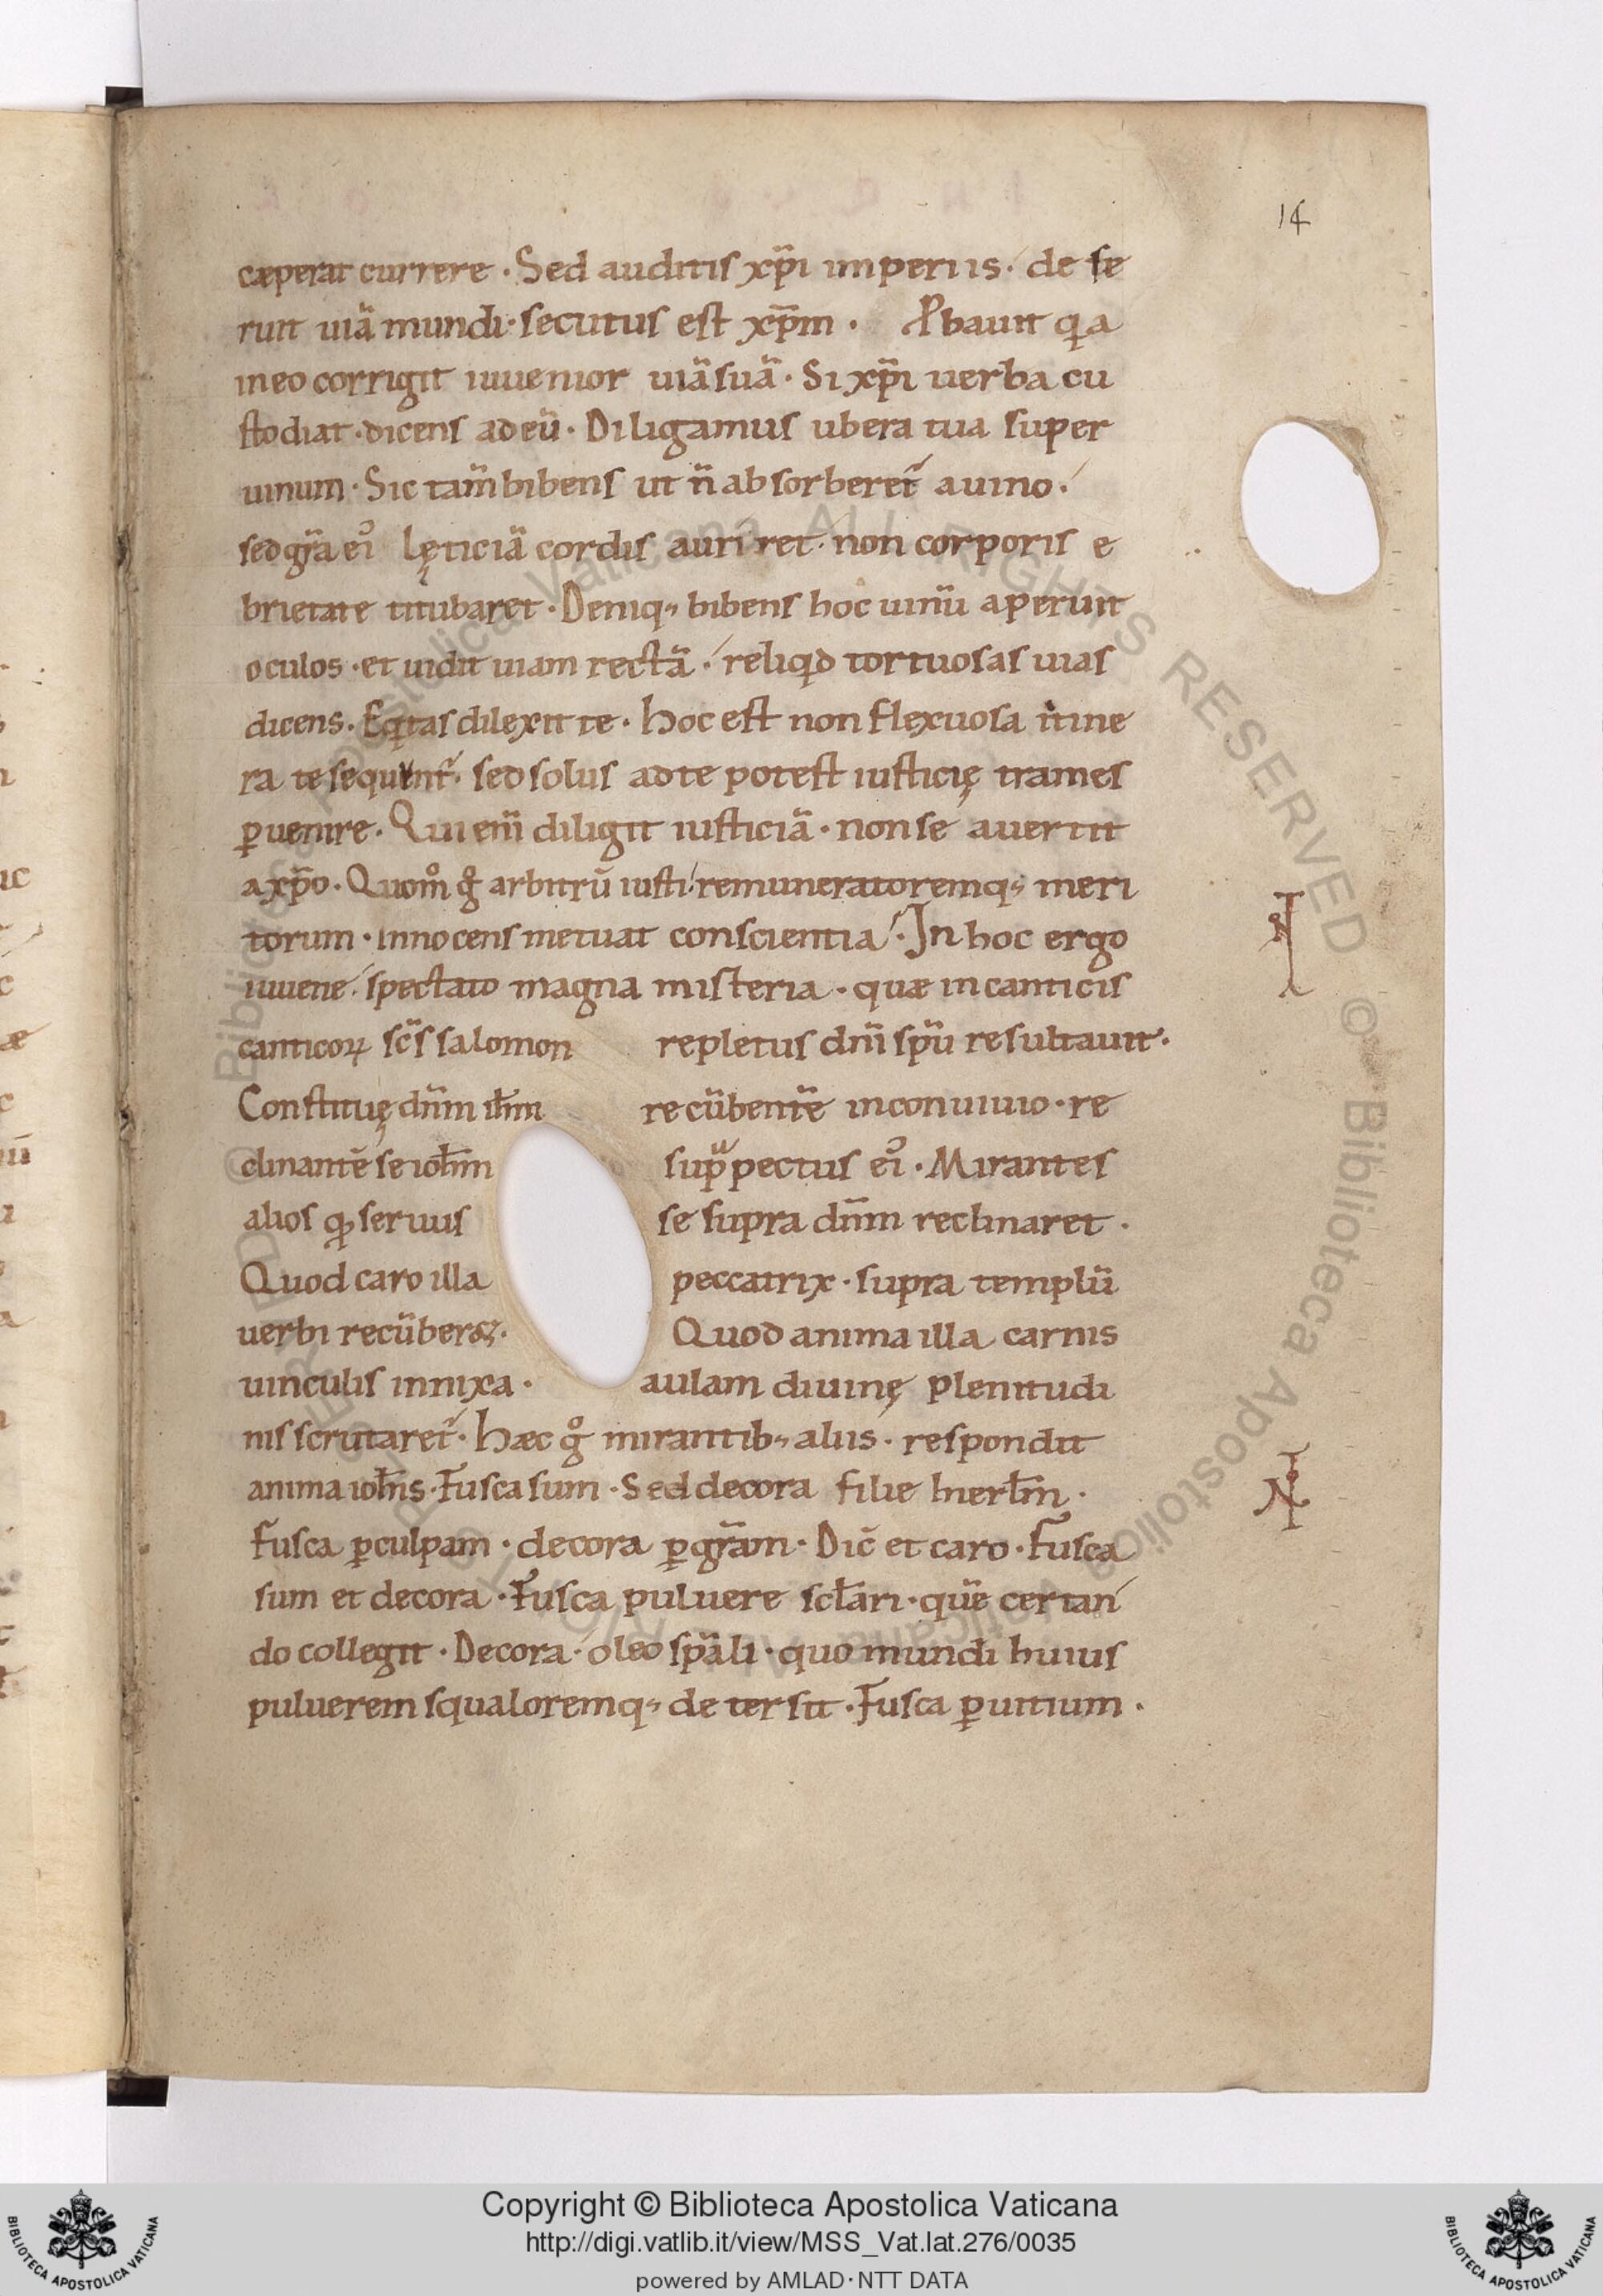 14
cæperat currere · Sed auditis xp̄i imperiis · dese
ruit uiā mundi · secutus est xp̄m · Ꝓbauit qͥa
in eo corrigit iuuenior uiā suā · Si xp̄i uerba cu
stodiat · dicens ad eū · Diligamus ubera tua super
uinum · Sic tam̄ bibens ut n̄ absorberet᷑ a uino ·
sed gr̄a ei᷒ lęticiā cordis auriret · non corporis e
brietate titubaret · Deniq; bibens hoc uinū aperuit
oculos · et uidit uiam rectā · reliqͥd tortuosas uias
dicens · Eqͥtas dilexit te · hoc est non flexuosa itine
ra te sequunt᷑ · sed solus ad te potest iusticię trames
ꝑuenire · Qui eni̅ diligit iusticiā · non se auertit
a xp̄o · Quom̊ gͦ arbitrū iusti remuneratoremq; meri
torum · innocens metuat conscientia · In hoc ergo
iuuene · spectato magna misteria · quæ in canticis
canticoꝝ sc̄s salomon repletus dn̄i sp̄u resultauit ·
Constituę dn̄m ih̄m recūbentē in conuiuio · re
clinantē se ioh̄m supͣ pectus ei᷒ · Mirantes
alios qꝫ seruus se supra dn̄m reclinaret ·
Quod caro illa peccatrix · supra templū
uerbi recūberꝫ · Quod anima illa carnis
uinculis innixa · aulam diuinę plenitudi
nis scrutaret᷑ · hæc gͦ mirantib; aliis · respondit
anima ioh̄is · Fusca sum · Sed decora filie hierl̄m ·
Fusca ꝑ culpam · decora ꝑ gr̄am · Dic̄ et caro · Fusca
sum et decora · Fusca puluere scl̄ari · quē certan
do collegit · Decora · oleo sp̄ali · quo mundi huius
puluerem squaloremq; detersit · Fusca ꝑ uitium ·
Copyright © Biblioteca Apostolica Vaticana
http://digi.vatlib.it/view/MSS_Vat.lat.276/0035
powered by AMLAD·NTT DATA
BIBLIOTECA APOSTOLICA VATICANA
BIBLIOTECA APOSTOLICA VATICANA